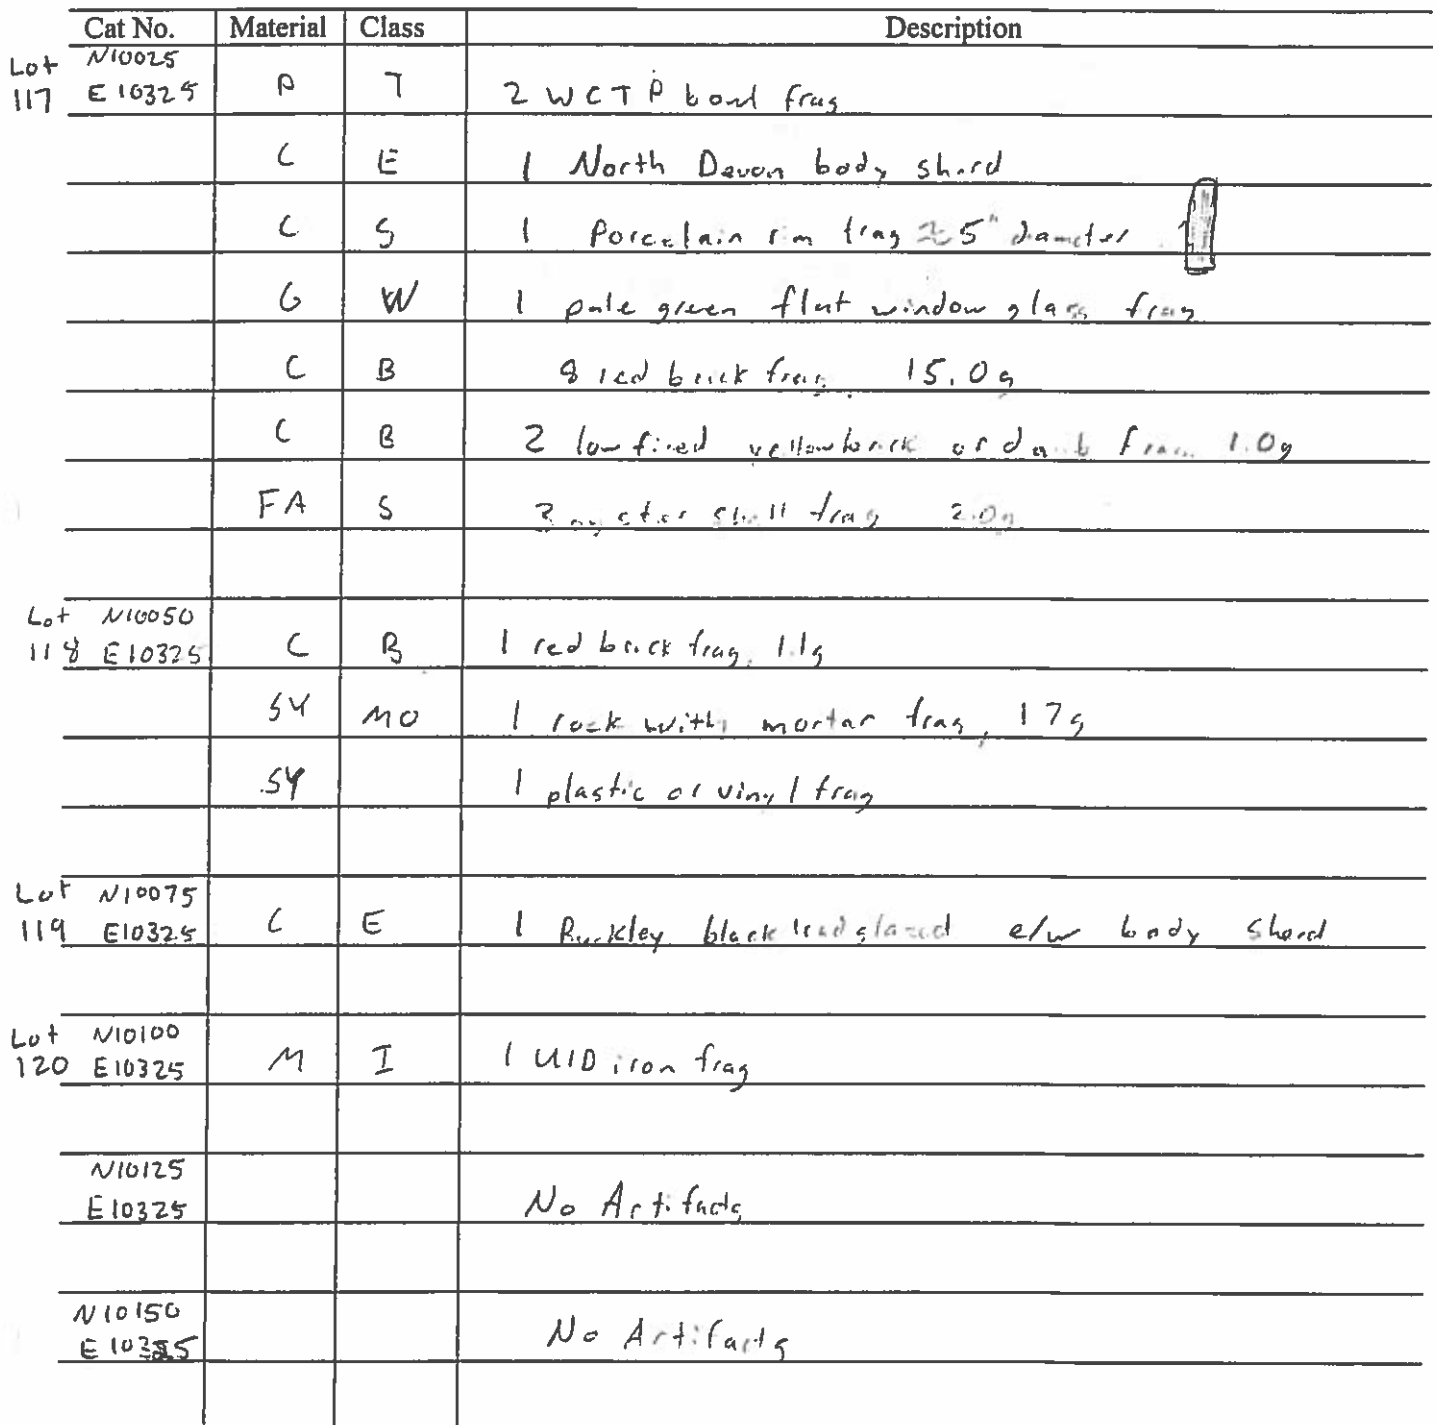 Cat No. Material Class Description
Lot N10025
117 E10325 P T 2 WCTP bowl frag
C E 1 North Devon body sherd
C S 1 Porcelain rim frag ≈ 5" diameter
G W 1 pale green flat window glass frag
C B 8 red brick frag 15.0g
C B 2 low fired yellow brick or daub frag 1.0g
FA S 3 oyster shell frag 2.0g
Lot N10050
118 E10325 C B 1 red brick frag, 1.1g
SY MO 1 rock with mortar frag, 17g
SY 1 plastic or vinyl frag
Lot N10075
119 E10325 C E 1 Buckley black lead glazed e/w body sherd
Lot N10100
120 E10325 M I 1 UID iron frag
N10125
E10325 No Artifacts
N10150
E10325 No Artifacts